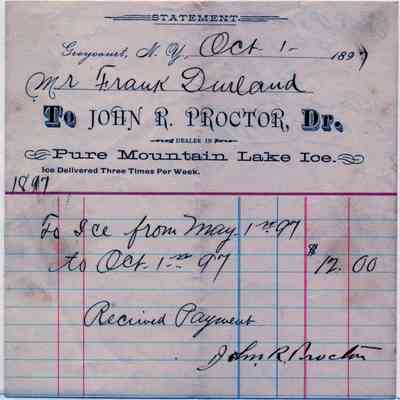 STATEMENT.
Greycourt, N. Y. Oct 1- 1897
Mr Frank Durland
To JOHN R. PROCTOR, Dr.
DEALER IN
Pure Mountain Lake Ice.
Ice Delivered Three Times Per Week.
1897
To Ice from May 1st 97
to Oct. 1st 97 $12.00
Recieved Payment
John R. Proctor